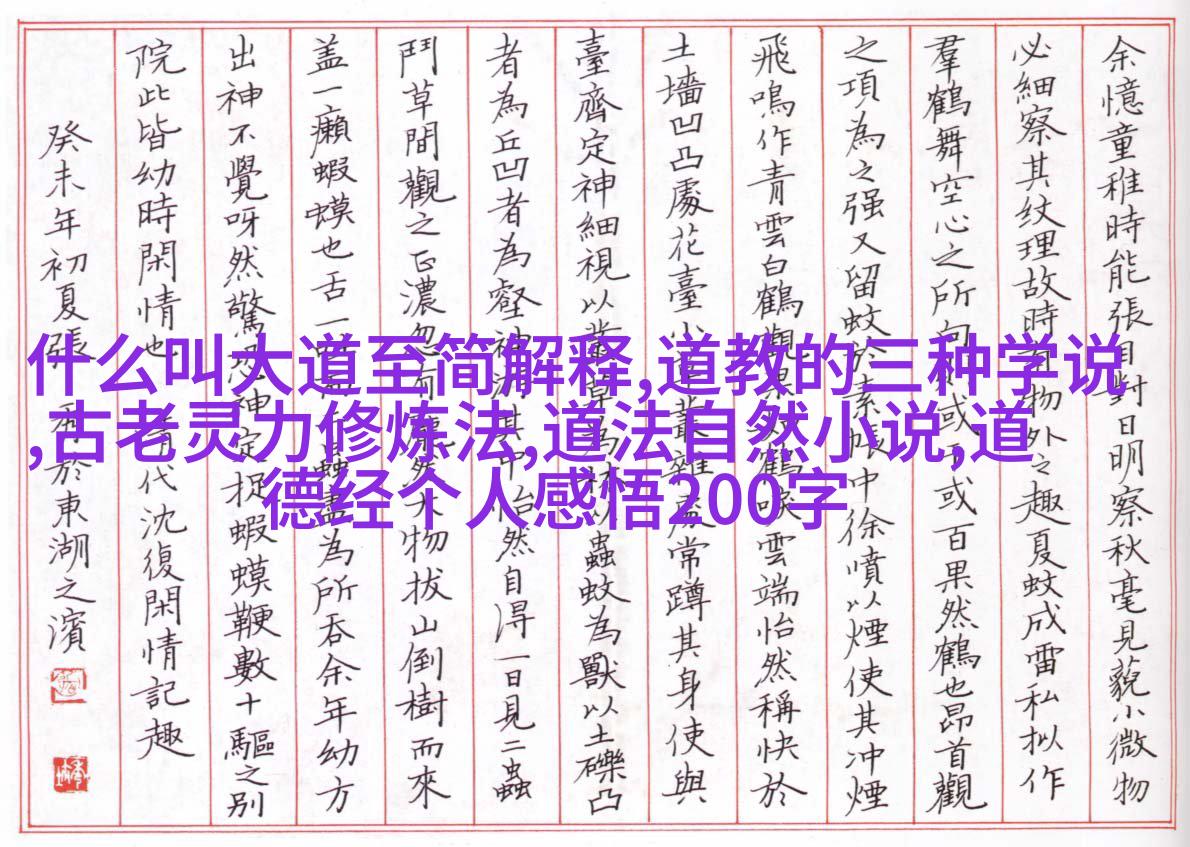 什么叫大道至简解释,道教的三种学说
,古老灵力修炼法,道法自然小说,道
德经个人感悟200字
余憶童稚時能張目對日明察秋毫見藐小微物
必細察其紋理故時有物外之趣夏蚊成雷私拟作
羣鶴舞空心之所向則或千或百果然鶴也昂首觀
之項為之强又留蚊於素帳中徐噴以煙使其冲煙
飛鳴作青雲白鶴觀果如鶴唳雲端怡然稱快於
土墻凹凸處花臺小草叢雜處常蹲其身使與
臺齊定神細視以叢草為林以蟲蚊為獸以土礫凸
者為丘凹者為壑神游其中怡然自得一日見二蟲
鬥草間觀之正濃忽有龐然大物拔山倒樹而來
盖一癩蝦蟆也舌一吐而二蟲盡為所吞余年幼方
出神不覺呀然驚恐神定捉蝦蟆鞭數十驅之别
院此皆幼時閑情也清代沈復閑情記趣
癸未年初夏張於東湖之濱